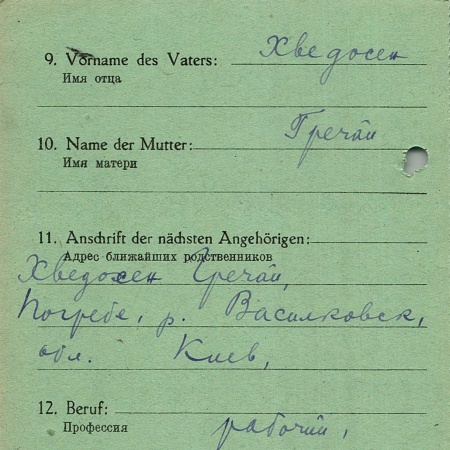 9. Vorname des Vaters: Хведосен
Имя отца
10. Name der Mutter: Гречай
Имя матери
11. Anschrift der nächsten Angehörigen:
Адрес ближайших родственников
Хведосен Гречай,
Погребе, р. Василковск,
обл. Киев,
12. Beruf:
Профессия рабочий,